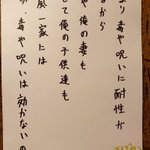 より毒や呪いに耐性が
るから
や俺の妻も
して俺の子供達も
風一家には
毒や呪いは効かないの